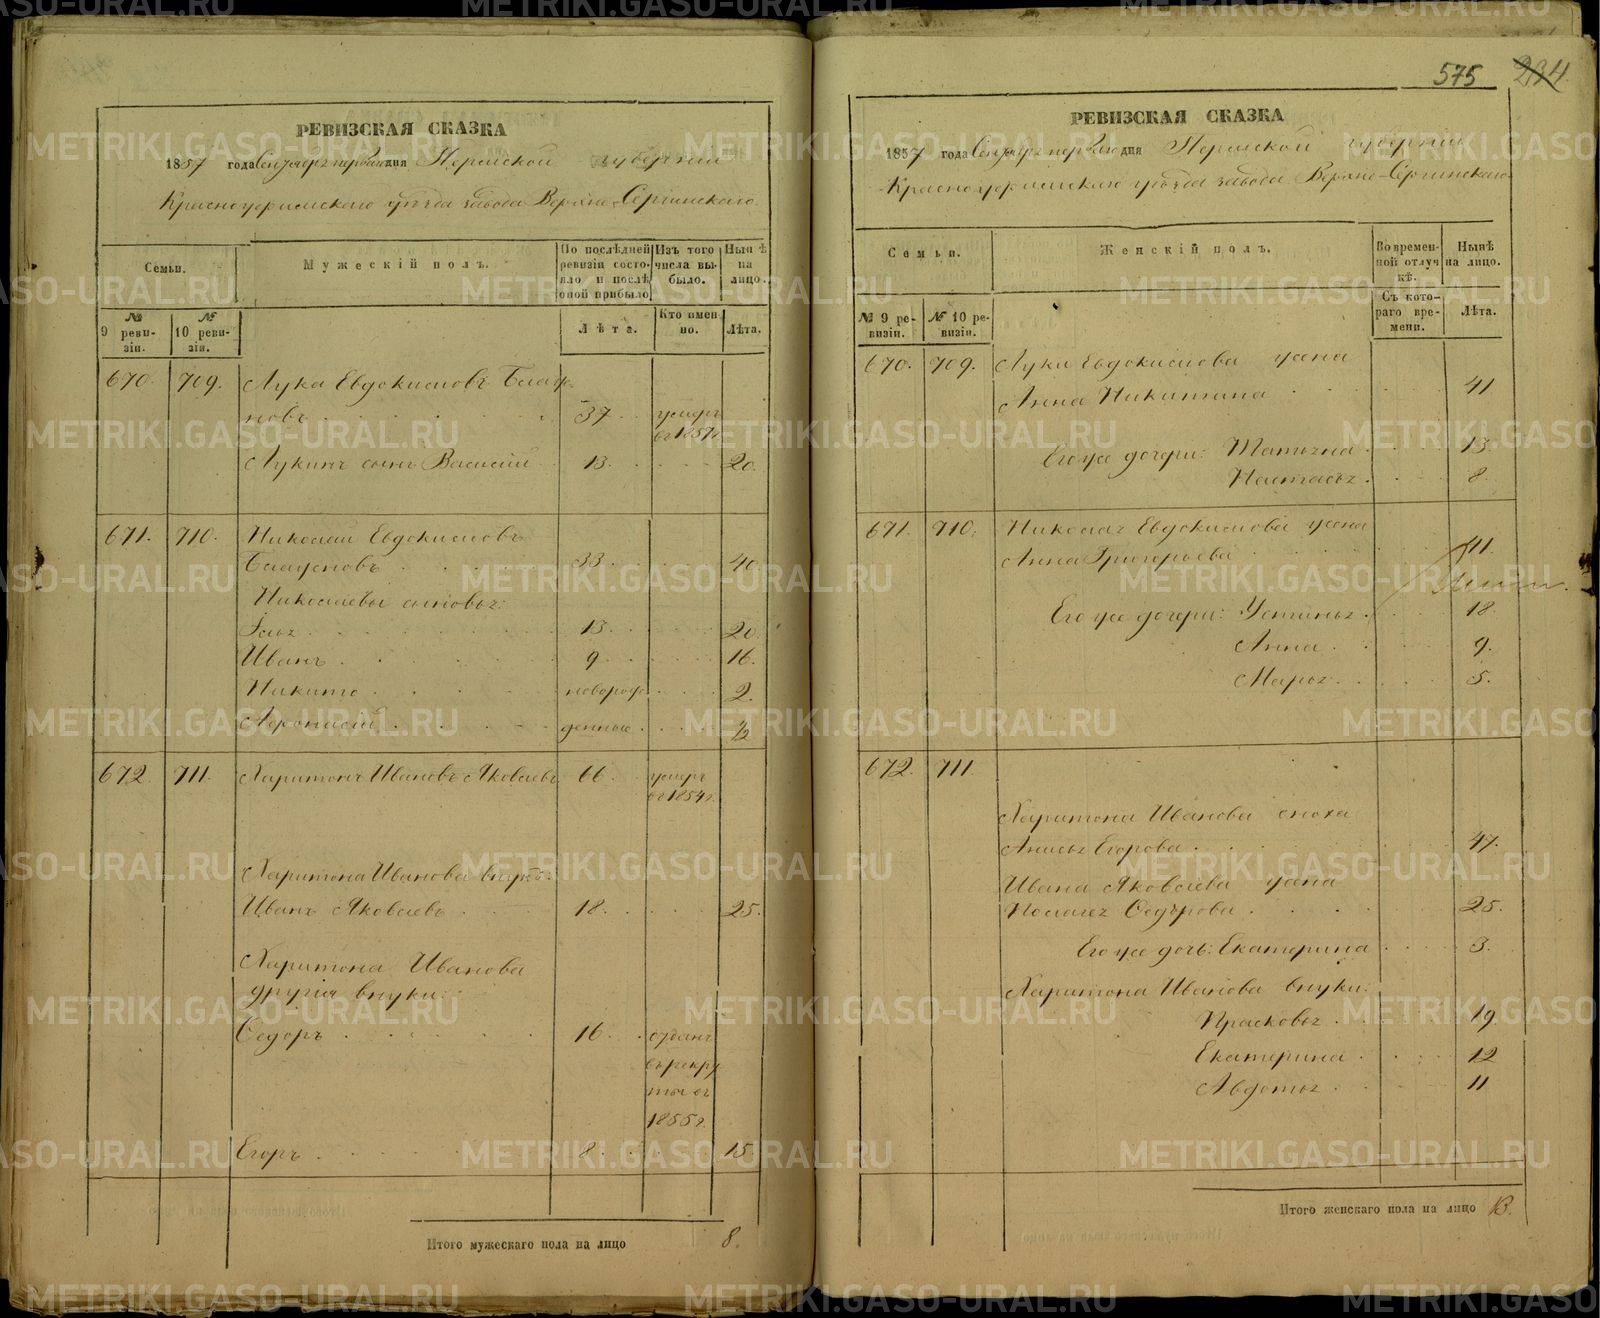 575 234
РЕВИЗСКАЯ СКАЗКА
1857 года Сентября первого дня Пермской губернии
Красноуфимского уѣзда завода Верхне-Сергинскаго
Семьи.
Мужескій полъ.
По послѣдней ревизіи состояло и послѣ оной прибыло
Изъ того числа выбыло.
Нынѣ на лицо.
№ 9 ревизіи.
№ 10 ревизіи.
Лѣта.
Кто именно.
Лѣта.
670. 709. Лука Евдокимовъ
новъ 37 умеръ
въ 1857 г
Лукинъ сынъ Василій 13 20.
671. 710. Николай Евдокимовъ
33. 40.
Николаевы сыновья:
Илья 13 20.
Иванъ 9 16.
Никита новорож 2.
Афонасій денные 1/2
672. 711. Харитонъ Ивановъ Яковлевъ 66 умеръ
въ 1854 г.
Харитона Иванова внукъ:
Иванъ Яковлевъ 18. 25.
Харитона Иванова
другія внуки:
Федоръ 16 отданъ
въ рекру
ты въ
1855 г.
Егоръ 8. 15.
Итого мужескаго пола на лицо 8.
РЕВИЗСКАЯ СКАЗКА
1857 года Сентября первого дня Пермской губерніи
Красноуфимскаго уѣзда завода Верхне-Сергинскаго
Семьи.
Женскій полъ.
Во временной отлучкѣ.
Нынѣ на лицо.
№ 9 ревизіи.
№ 10 ревизіи.
Съ котораго времени.
Лѣта.
670. 709. Луки Евдокимова жена
Анна Никитина 41
Его же дочери: Татьяна 13.
Настасья 8.
671. 710. Николая Евдокимова жена
Анна Григорьева 41.
Его же дочери: Устинья 18.
Анна 9.
Марья 5.
672. 711.
Харитона Иванова сноха
Анисья Егорова 47.
Ивана Яковлева жена
Пелагея Федорова 25.
Его же дочь: Екатерина 3.
Харитона Иванова внуки:
Прасковья 19
Екатерина 12
Авдотья 11
Итого женскаго пола на лицо 13.
METRIKI.GASO-URAL.RU